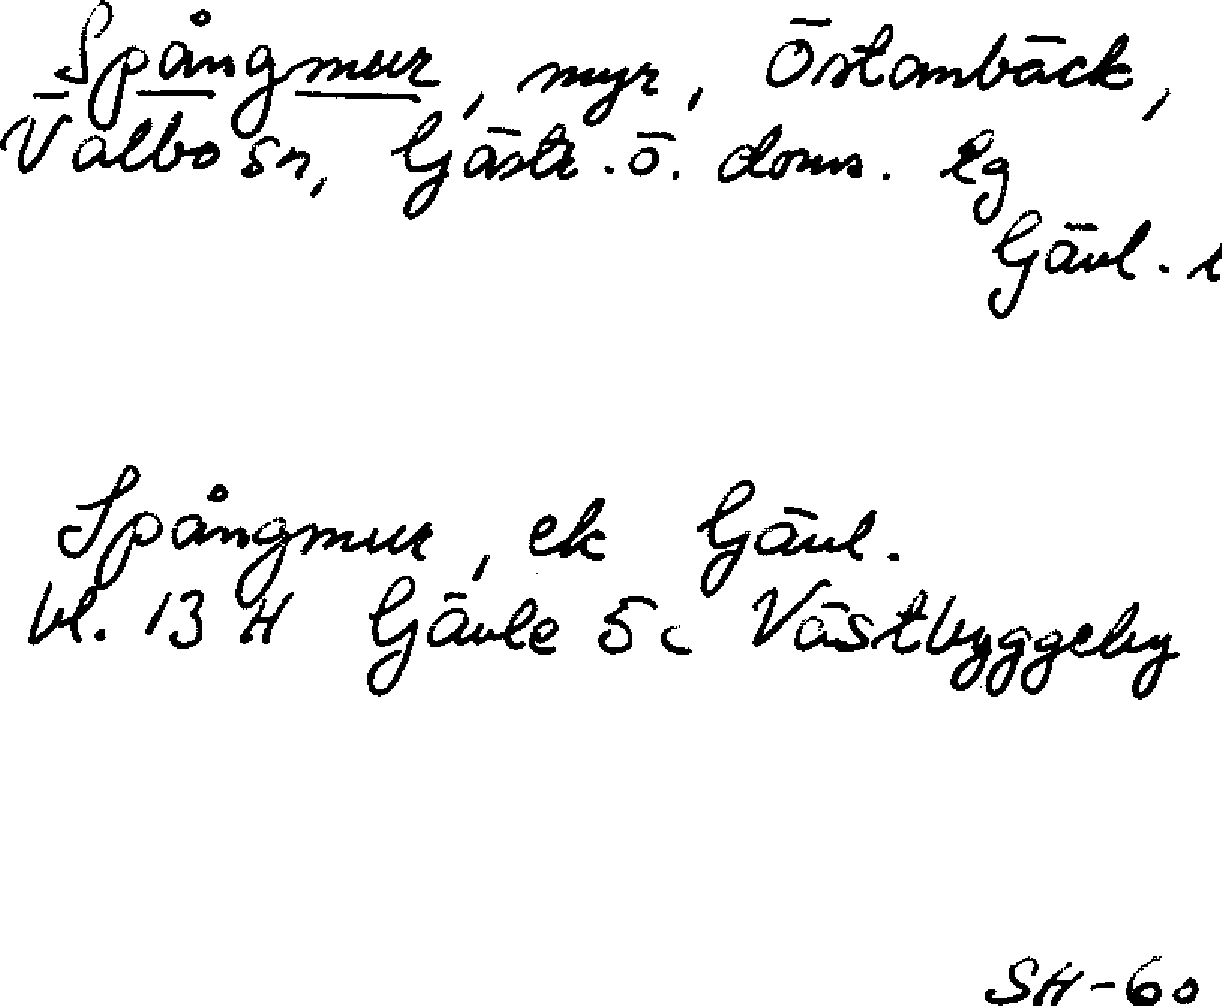 Spångmur, myr, Östanbäck,
Valbo sn, Gästr. ö. doms. Eg
Gävl. l
Spångmur, ek Gävl.
bl. 13 H Gävle 5c Västbyggeby
SH-60